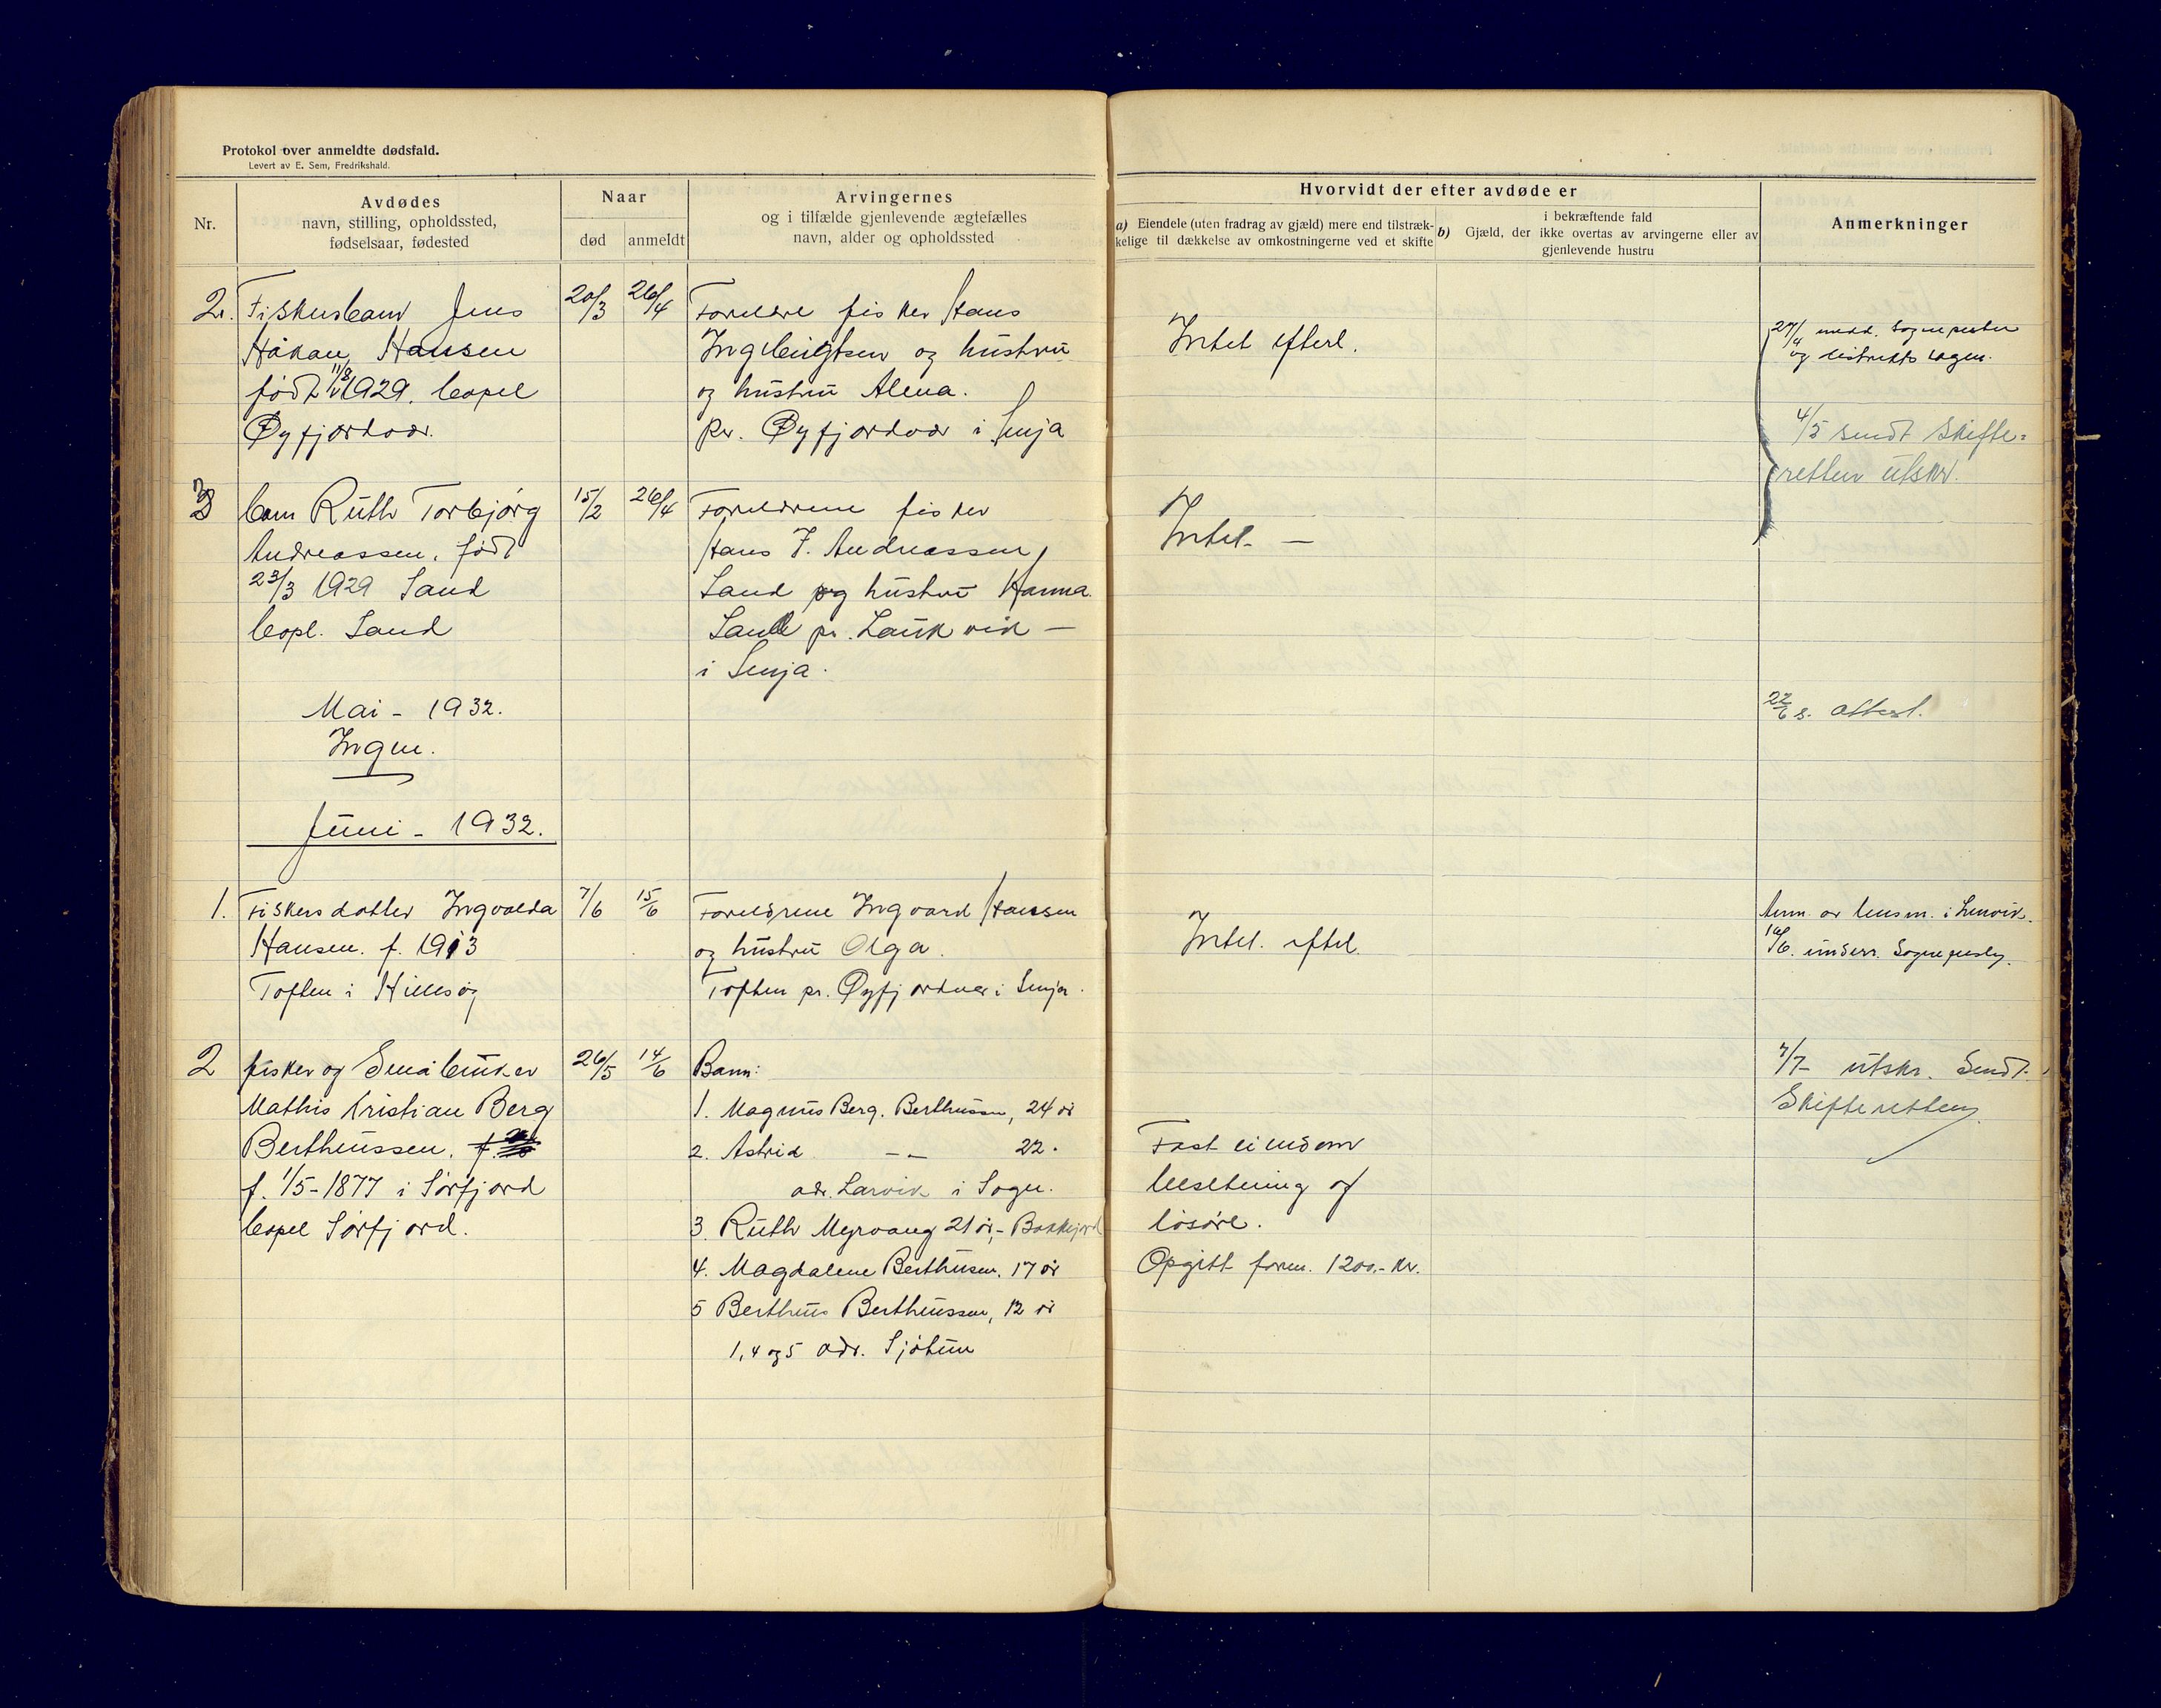 Protokol over anmeldte dødsfald.
Levert av E. Sem, Fredrikshald.
Nr.
Avdødes
navn, stilling, opholdssted,
fødselsaar, fødested
Naar
død
anmeldt
Arvingernes
og i tilfælde gjenlevende ægtefælles
navn, alder og opholdssted
Hvorvidt der efter avdøde er
a) Eiendele (uten fradrag av gjæld) mere end tilstræk-
kelige til dækkelse av omkostningerne ved et skifte
i bekræftende fald
b) Gjæld, der ikke overtas av arvingerne eller av
gjenlevende hustru
Anmerkninger
2. Fiskerbarn Jens
Håkan Hansen
født 11/8 1929. bopel
Øyfjordvær.
20/3
26/4
Foreldre fisker Hans
Ingebrigtsen og hustru
og hustru Alena.
pr. Øyfjordvær i Senja
Intet efterl.
27/4 medd. Sognepresten
og distriktslægen.
4/5 sendt Skifte=
retten utskr.
3 barn Ruth Torbjørg
Andreassen. født
23/3 1929 Sand
bopl. Sand
15/2
26/4
Foreldrene fisker
Hans J. Andreassen,
Sand og hustru Hanna
Sand pr. Laukvik –
i Senja.
Intet. —
Mai - 1932.
Ingen.
22/6 s. attest.
Juni - 1932.
1. Fiskersdatter Ingvalda
Hansen. f. 1913
Toften i Hillesøy
7/6
15/6
Foreldrene Ingvard Hansen
og hustru Olga.
Toften pr. Øyfjordvær i Senja.
Intet. eftel.
Anm. av lensm. i Lenvik.
16/6. underr. Sogneprest.
2 fisker og Småbruker
Mathis Kristian Berg
Bertheussen. f.
f. 1/5-1877 i Sørfjord
bopel Sørfjord.
26/5
14/6
Barn:
1. Magnus Berg. Berthussen, 24 år
2. Astrid — — 22.
adr. Larvik i Sogn.
3. Ruth Myrvang 21 år, - Bakkejord
4. Magdalene Berthusen. 17 år
5 Bertheus Bertheussen, 12 år
1, 4 og 5 adr. Sjøtun
Fast eiendom
besetning og
løsøre.
Opgitt form. 1200,- kr.
7/7- utskr. Sendt.
Skifteretten